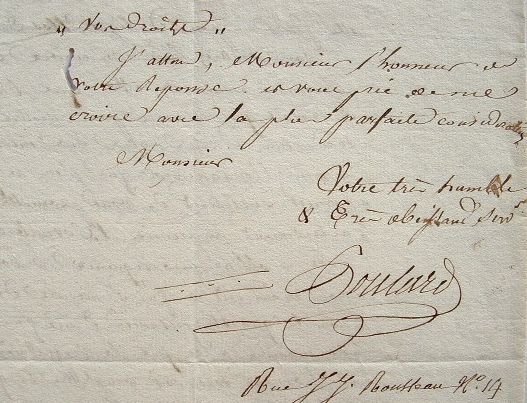 " Vos droits "
J'attens, Monsieur l'honneur de
votre Reponse et vous prie de me
croire avec la plus parfaite consideration
Monsieur
Votre très humble
& Très obeissant Servr
Boulard
Rue J. J. Rousseau No. 14